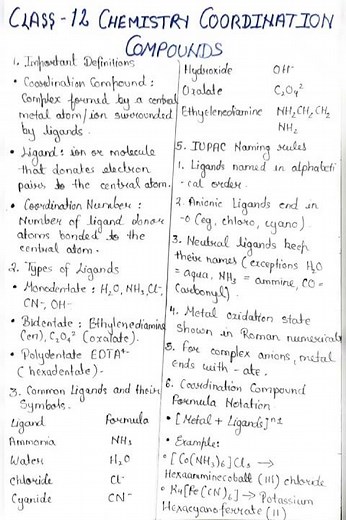 CLASS-12 CHEMISTRY COORDINATION
COMPOUNDS
1. Important Definitions
• Coordination Compound:
Complex formed by a central
metal atom/ion surrounded
by ligands.
• Ligand: ion or molecule
that donates electron
pairs to the central atom.
• Coordination Number:
Number of ligand donor
atoms bonded to the
central atom.
2. Types of Ligands
• Monodentate: H₂O, NH₃, Cl⁻,
CN⁻, OH⁻
• Bidentate: Ethylenediamine
(en), C₂O₄² (oxalate).
• Polydentate EDTA⁴⁻
(hexadentate).
3. Common Ligands and their
Symbols.
Ligand Formula
Ammonia NH₃
Water H₂O
Chloride Cl⁻
Cyanide CN⁻
Hydroxide OH⁻
Oxalate C₂O₄²
Ethylenediamine NH₂CH₂CH₂
NH₂
5. IUPAC Naming rules
1. Ligands named in alphabeti
-cal order.
2. Anionic Ligands end in
-o (eg. chloro, cyano).
3. Neutral ligands keep
their names (exceptions H₂O
= aqua, NH₃ = ammine, CO =
Carbonyl).
4. Metal oxidation state
shown in Roman numericals
5. For complex anions, metal
ends with -ate.
6. Coordination Compound
Formula Notation
• [Metal + Ligands]ⁿ±
• Example:
• [Co(NH₃)₆]Cl₃ →
Hexaamminecobalt (III) chloride
• K₄[Fe(CN)₆] → Potassium
Hexacyanoferrate (II)